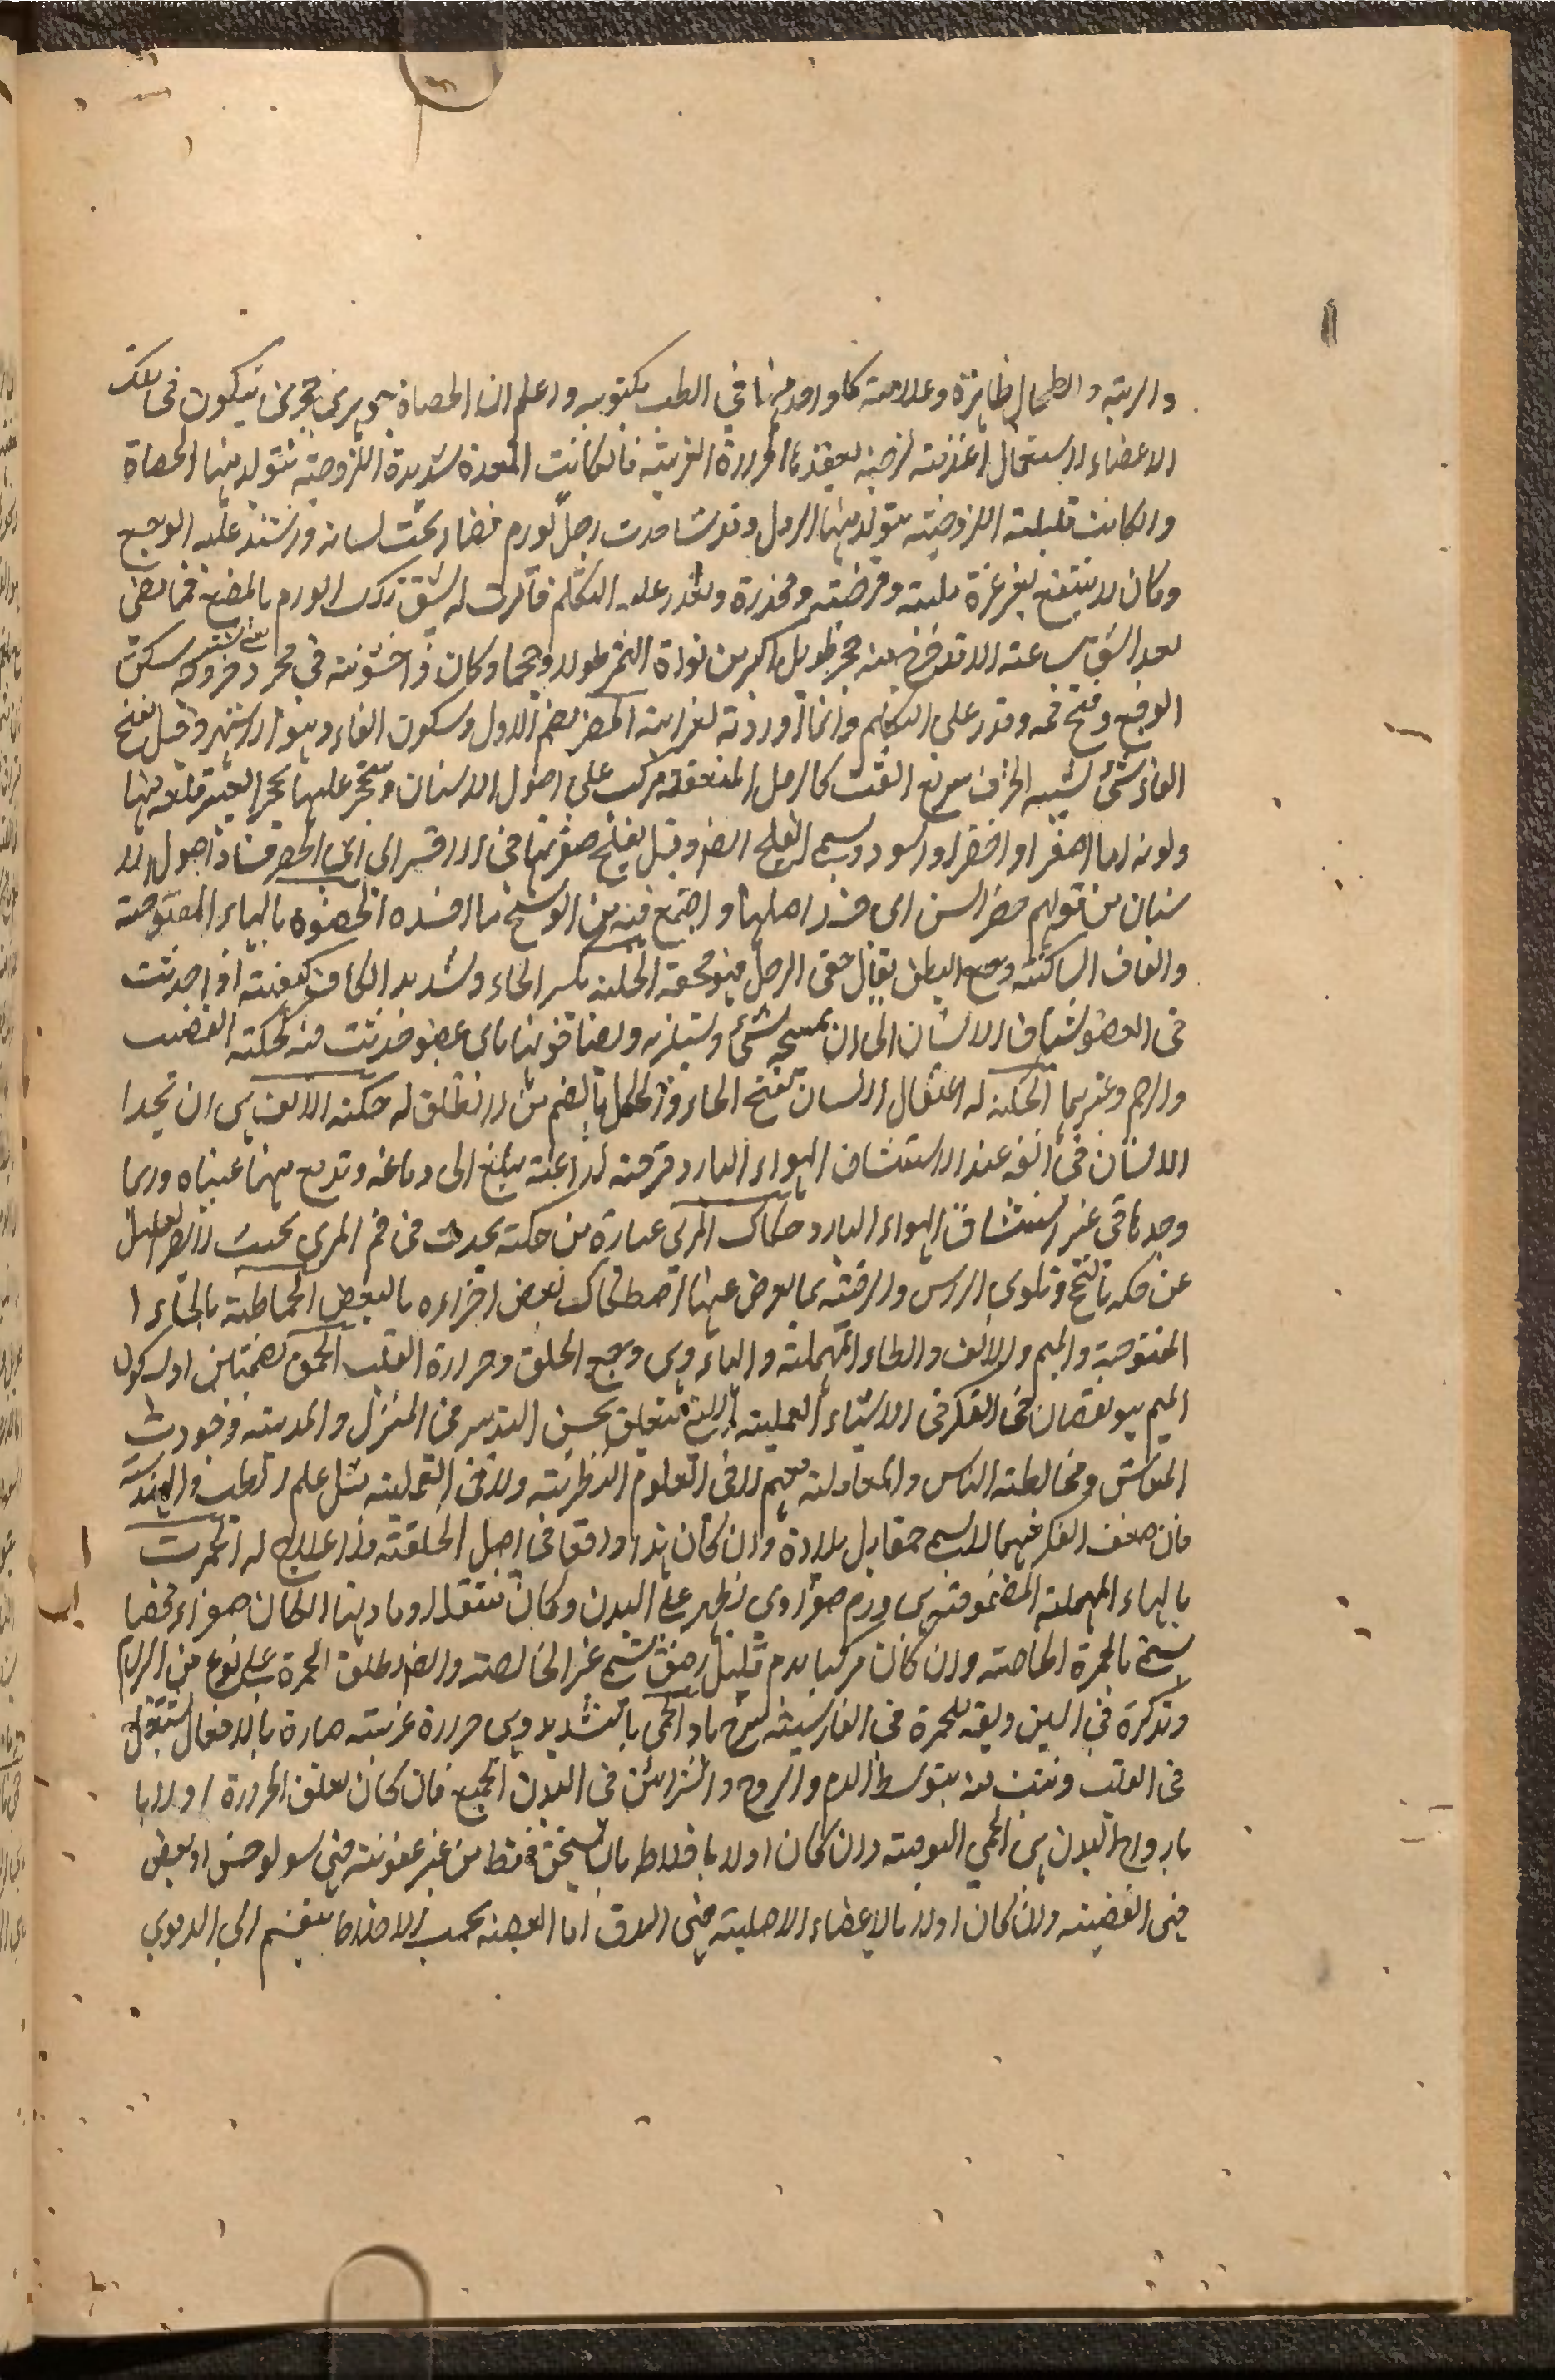 والرية والطحال ظاهرة وعلامة كل واحد منها في الطب مكتوبة واعلم ان الحصاة جوهر حجري يتكون في تلك
الاعضاء لاستعمال اغذية لزجة يعقدها الحرارة الغريبة فان كانت المعدة شديدة اللزوجة يتولد منها الحصاة
وان كانت قليلة اللزوجة يتولد منها الرمل وقد شاهدت رجلا تورم فضاء تحت لسانه واشتد عليه الوجع
وكان لا ينتفع بغرغرة ملينة ومرخية ومخدرة وتعذر عليه التكلم فامرت له بشق ذلك الورم بالمبضع فما مضى
بعد الشق ساعة الا قد خرج منه حجر طويل اكبر من نواة التمر طولا وحجما وكان ذا خشونة في مجرد خروجه سكن
الوجع وفتح فمه وقدر على التكلم وانما اوردته لغرابته الحفر بضم الاول وسكون الفاء وهو الاشهر وقيل بفتح
الفاء شيء شبيه الخزف سريع التفتت كالرمل المنعقدة يركب على اصول الاسنان ويتحجر عليها تحجرا يعسر قلعه منها
ولونه اما اصفر او اخضر او اسود ويسمى القلح ايضا وقيل القلح صفرتها في الاقسرائي الحفر فساد اصول الا
سنان من قولهم حفر السن اى فسد اصلها واجتمع فيه من الوسخ ما افسده الحقوة بالحاء المفتوحة
والقاف الساكنة وجع البطن يقال حقى الرجل فهو محقو الحكة بكسر الحاء وتشديد الكاف كيفية اذا حدثت
في العضو يشتاق الانسان الى ان يمسحه بشيء ويستلذ به وايضا قوينا باى عضو حدثت فيه كحكة القضيب
والرحم وغيرهما الحكلة له اعتقال اللسان بفتح الحاء والحكل بالضم من لا نطق له حكة الانف هي ان تجدا
الانسان في انفه عند استنشاق الهواء البارد حرقة لذاعة يبلغ الى دماغه وتدمع منها عيناه وربما
وجدها في غير استنشاق الهواء البارد حكاك المرى عبارة عن حكة يحدث في فم المرى بحيث لا يصبر العليل
عن حكه بالتنخنح وتلوى الراس والرقبة بما يعرض عنها اصطكاك بعض اجزاءه بالبعض الحماطة بالحاء ا
المفتوحة والميم والالف والطاء المهملة والهاء هي وجع الحلق وحرارة القلب الحمق بضمتين او بسكون
الميم هو نقصان في الفكر في الاشياء العملية التي تتعلق بحسن التدبير في المنزل والمدينة وجودة
المعاش ومخالطة الناس والمعاملة معهم لا في العلوم النظرية ولا في العملية مثل علم الطب والهندسة
فان ضعف الفكر فيهما لا يسمى حمقا بل بلادة وان كان هذا واقعا في اصل الخلقة فلا علاج له الحمرة
بالحاء المهملة المضمومة هي ورم صفراوي يظهر على البدن وكان متنقلا ومادتها ان كان صفراء محضا
يسمى بالحمرة الخالصة وان كان مركبا بدم قليل رقيق تسمى غير الخالصة وايضا يطلق الحمرة على نوع من الرمد
وتذكرة في العين ويقال للحمرة في الفارسية سرخ باد الحمى بالتشديد وهي حرارة غريبة ضارة بالافعال تشتعل
في القلب وتنبث منه بتوسط الدم والروح والشرائين في البدن الجميع فان كان تعلق الحرارة اولا با
بارواح البدن هي الحمى اليومية وان كان اولا باخلاط بان تسخن فقط من غير عفونة فهى سونوخس او بعض
فهى العفنية وان كان اولا بالاعضاء الاصلية فهى الدق اما العفنة بحسب الاخلاط ينقسم الى الدموي